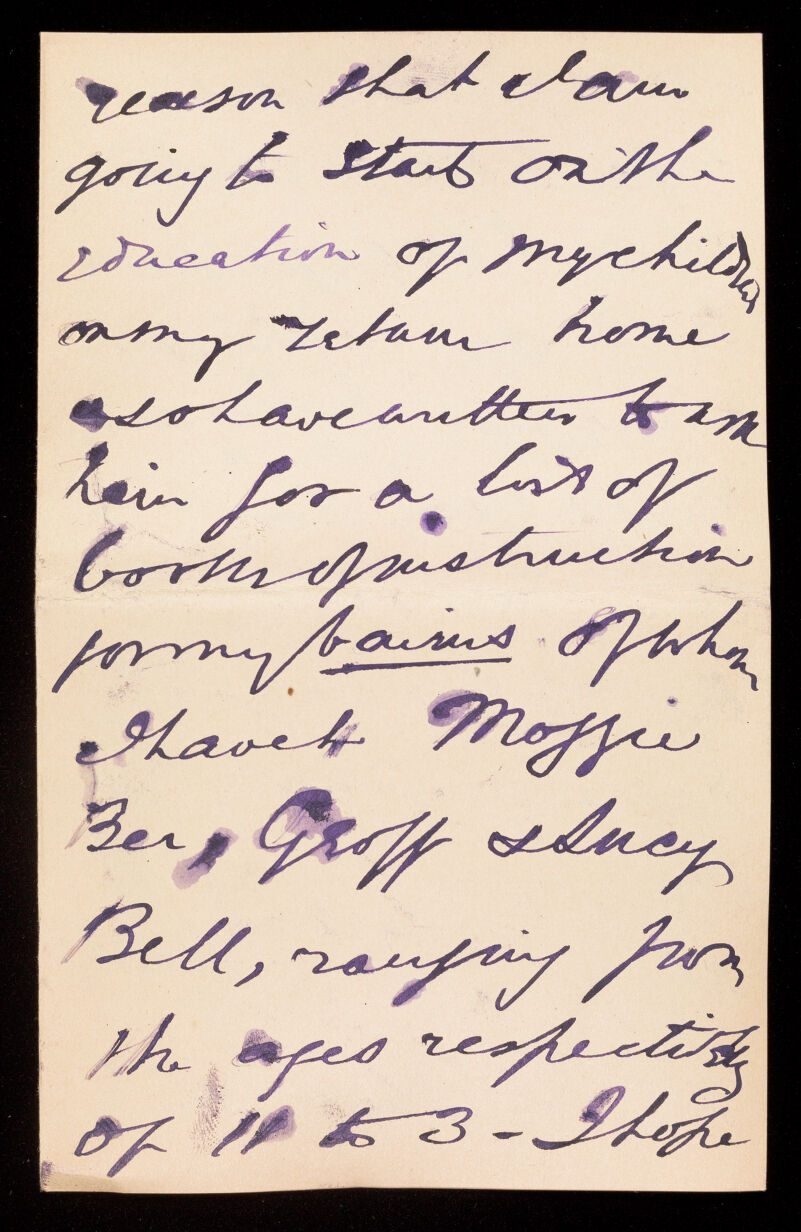 reason that I am
going to start on the
education of my children
on my return home
& so have written to ask
him for a list of
books of instruction
for my bairns of whom
I have 4 Moffie
Ber, Geoff & Lucy
Bell, ranging from
the ages respectively
of 11 to 3 - I hope